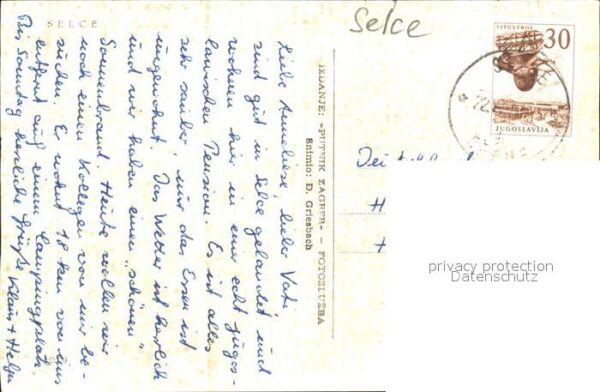 SELCE
Selce
Liebe Anneliese, lieber Vati!
sind gut in Selce gelandet und
wohnen hier in einer echt jugos-
lawischen Pension. Es ist alles
sehr sauber, nur das Essen ist
ungewohnt. Das Wetter ist herrlich
und wir haben einen "schönen"
Sonnenbrand. Heute wollen wir
noch einen Kollegen von mir be-
suchen. Er wohnt 18 km von uns
entfernt auf einem Campingplatz.
Bis Sonntag herzliche Grüße Klaus + Helga
IZDANJE: »PUTNIK ZAGREB« — FOTOSLUŽBA
Snimio: D. Griesbach
30
JUGOSLAVIJA
22.
H
privacy protection
Datenschutz